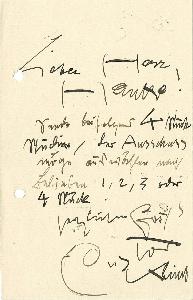 Lieber Herr
Hanke!
Sende beifolgend 4 Stück
Skizzen, der Ausschuss
möge auswählen nach
Belieben 1, 2, 3 oder
4 Stück!
herzlichen Gruß